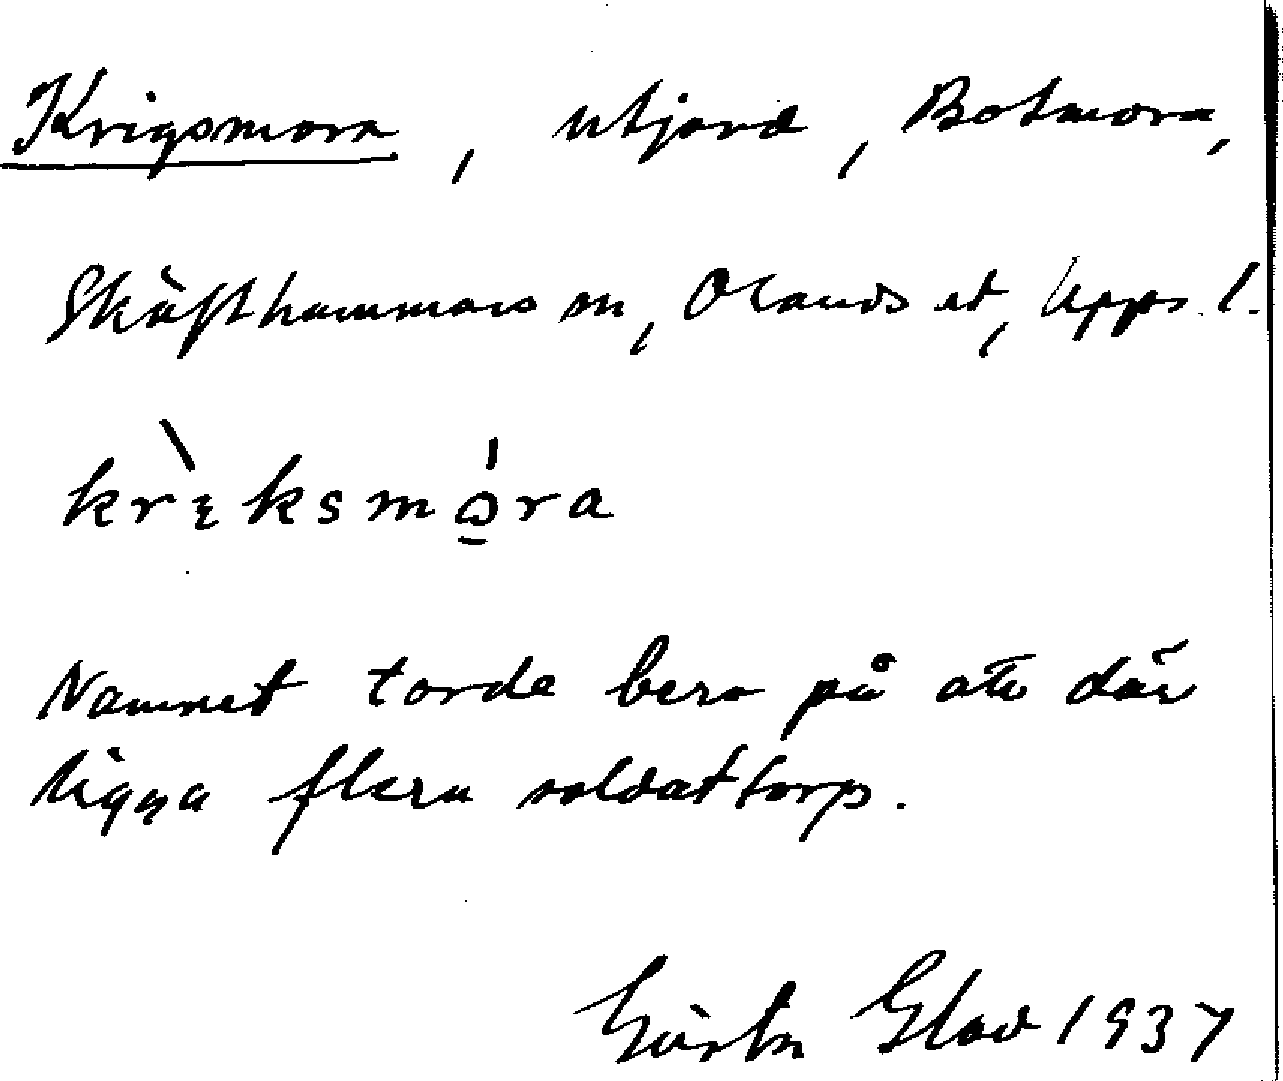 Krigsmora, utjord, Botmora,
Skäfthammars sn, Olands hd, Upps. l.
krìksmɷ̀ra
Namnet torde bero på att där
ligga flera soldattorp.
Gösta Glad 1937